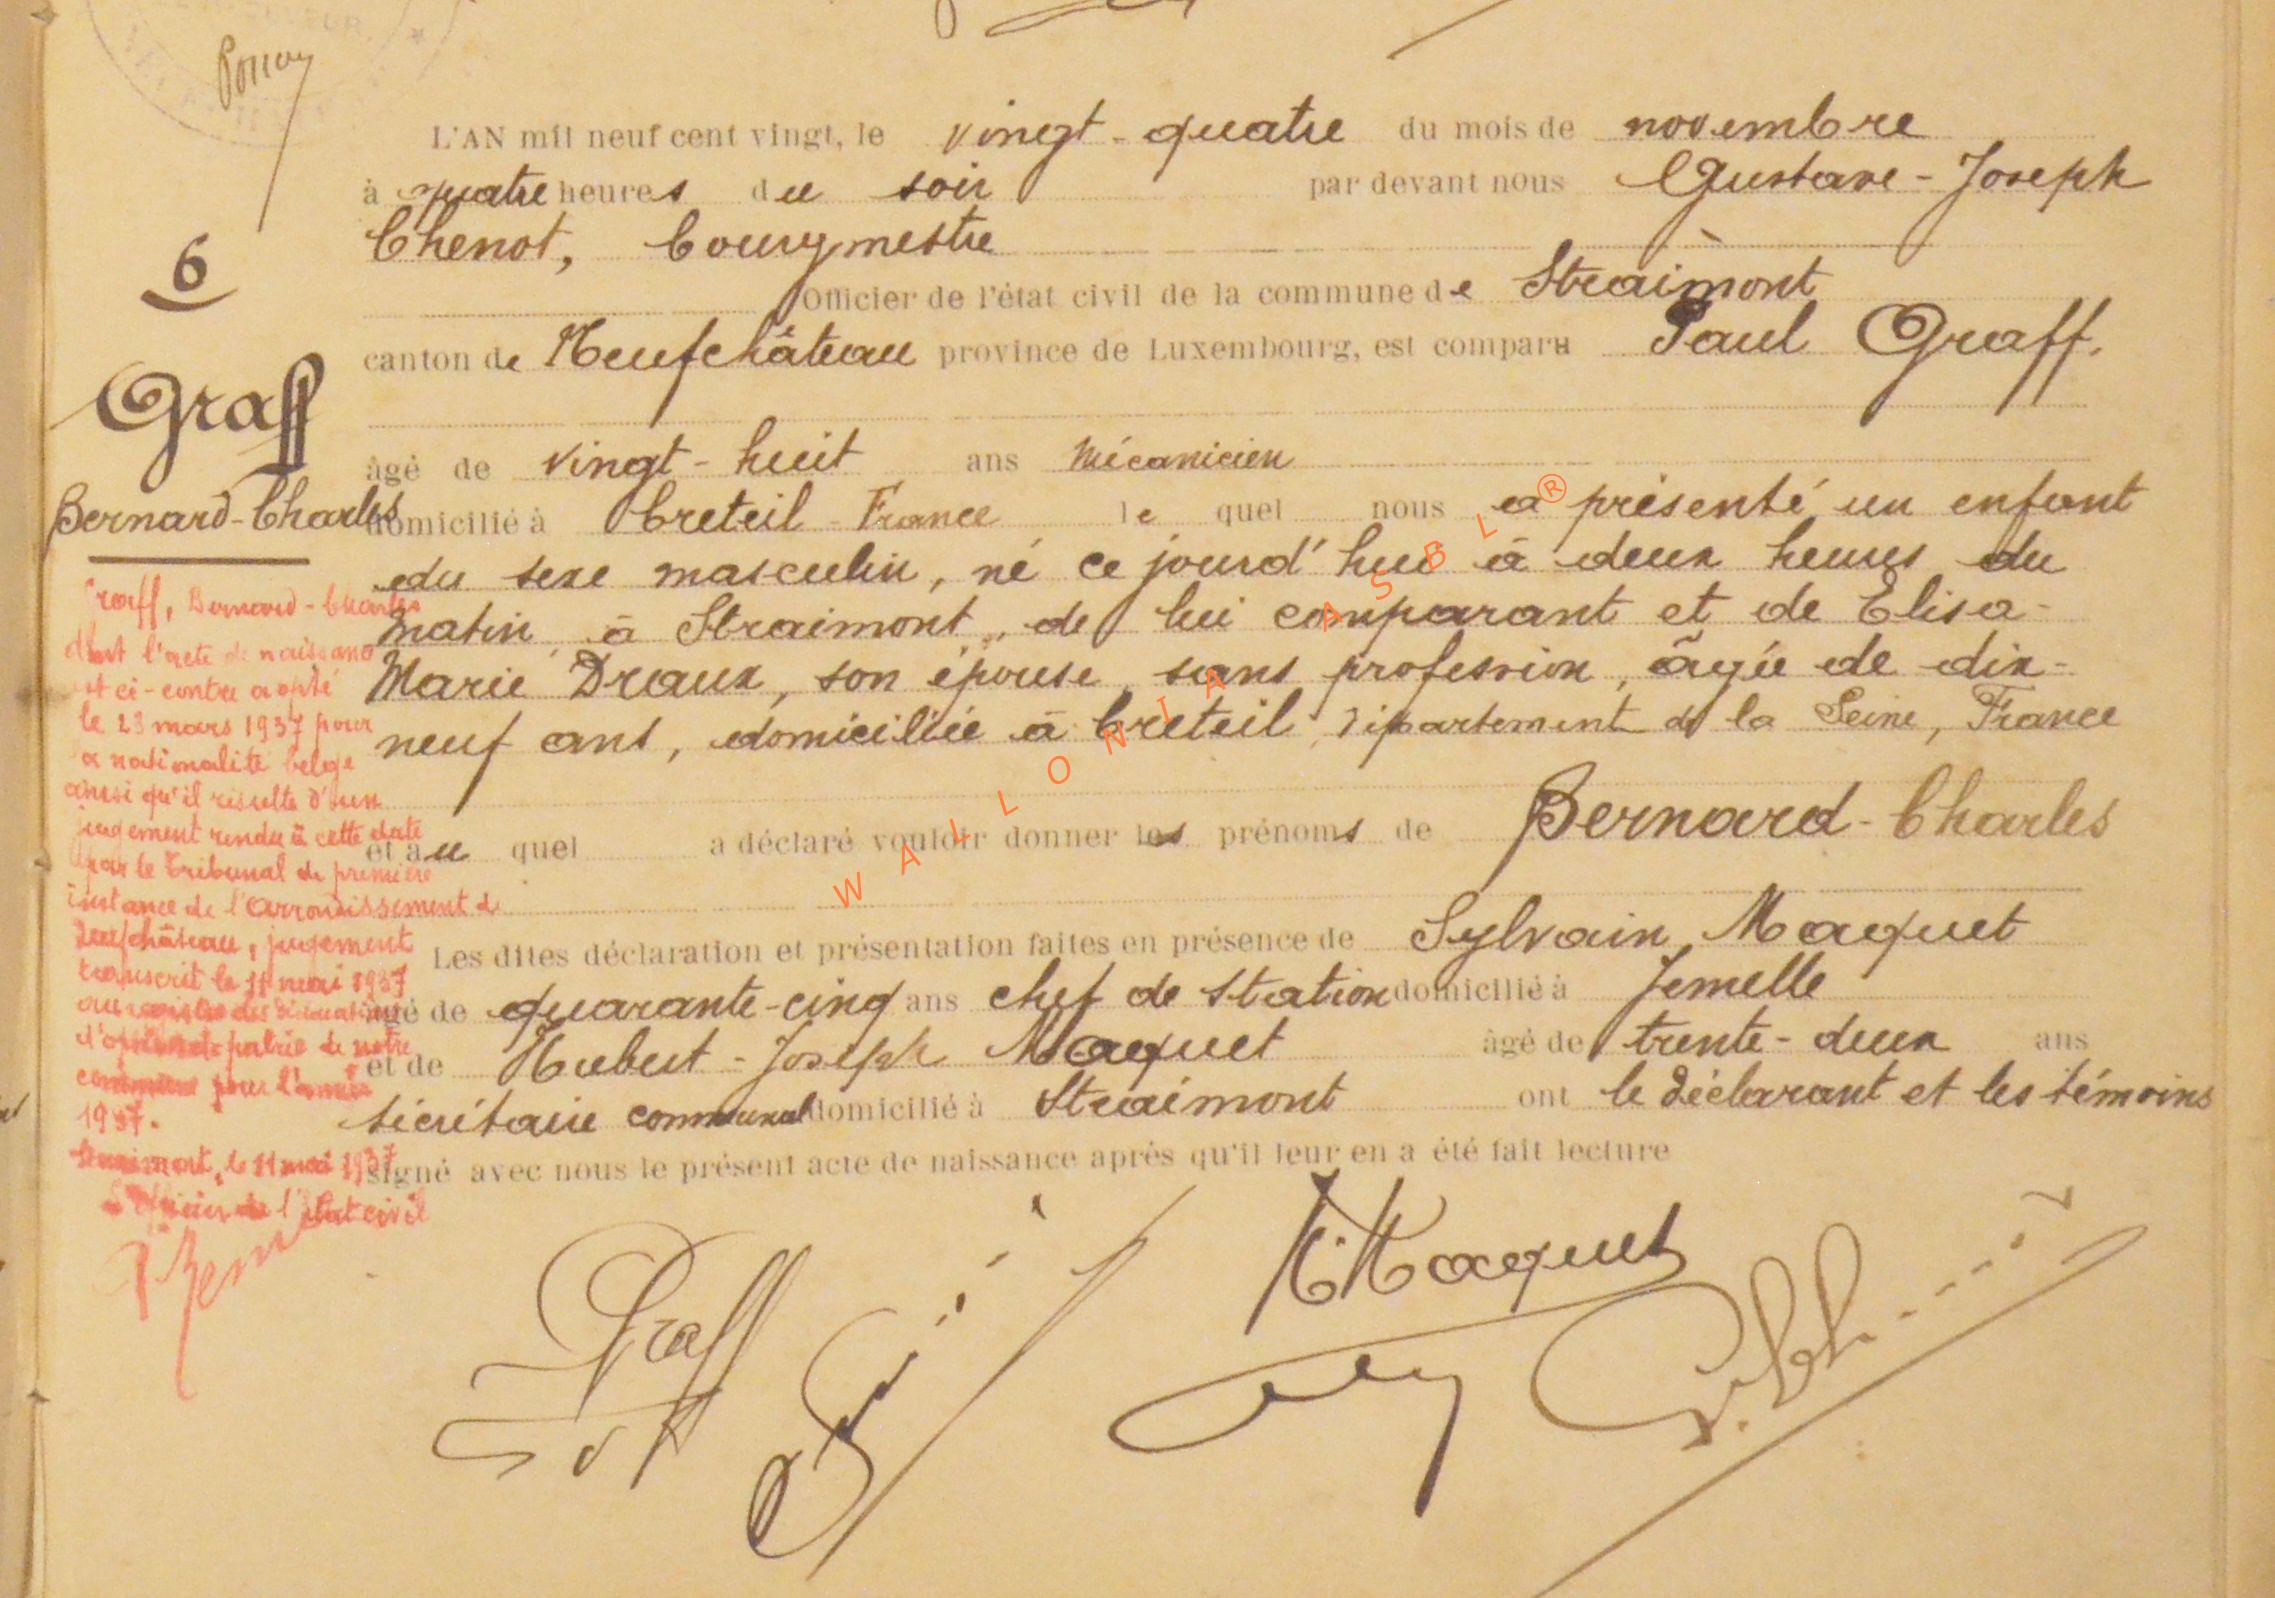 6
Graff
Bernard-Charles
L'AN mil neuf cent vingt, le vingt-quatre du mois de novembre
à quatre heures du soir par devant nous Gustave-Joseph
Chenot, bourgmestre
Officier de l'état civil de la commune de Straimont
canton de Neufchâteau province de Luxembourg, est comparu Paul Graff.
âgé de vingt-huit ans mécanicien
domicilié à Creteil-France lequel nous a présenté un enfant
du sexe masculin, né ce jourd'hui à deux heures du
matin, à Straimont, de lui comparant et de Elisa-
Marie Draux, son épouse, sans profession, âgée de dix-
neuf ans, domiciliée à Creteil, département de la Seine, France
et au quel a déclaré vouloir donner les prénoms de Bernard-Charles
Les dites déclaration et présentation faites en présence de Sylvain Maquet
âgé de quarante-cinq ans chef de station domicilié à Jemelle
et de Hubert-Joseph Maquet âgé de trente-deux ans
sécrétaire communal domicilié à Straimont ont le déclarant et les témoins
signé avec nous le présent acte de naissance après qu'il leur en a été fait lecture
Graff
Maquet
Graff, Bernard-Charles
dont l'acte de naissance
est ci-contre a opté
le 23 mars 1937 pour
la nationalité belge
ainsi qu'il résulte d'un
jugement rendu à cette date
par le Tribunal de première
instance de l'arrondissement de
Neufchâteau, jugement
transcrit le 11 mai 1937
au registre des déclarations
d'option de patrie de notre
commune pour l'année
1937.
Straimont, le 11 mai 1937
L'officier de l'état civil
WALLONIA ASBL ®